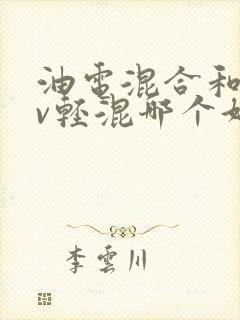 油電混合和
v輕混哪个好
李雲川